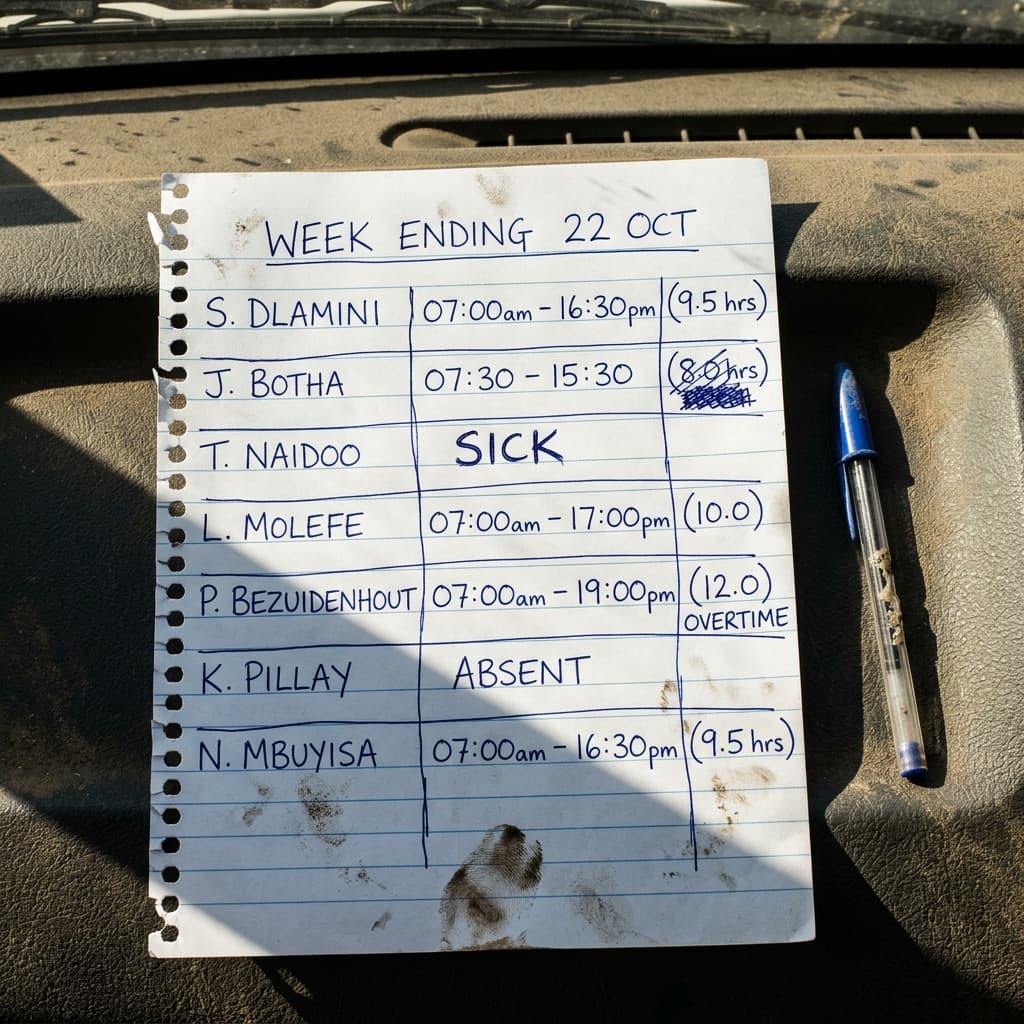 WEEK ENDING 22 OCT
S. DLAMINI 07:00am - 16:30pm (9.5 hrs)
J. BOTHA 07:30 - 15:30 (8.0 hrs)
T. NAIDOO SICK
L. MOLEFE 07:00am - 17:00pm (10.0)
P. BEZUIDENHOUT 07:00am - 19:00pm (12.0)
OVERTIME
K. PILLAY ABSENT
N. MBUYISA 07:00am - 16:30pm (9.5 hrs)